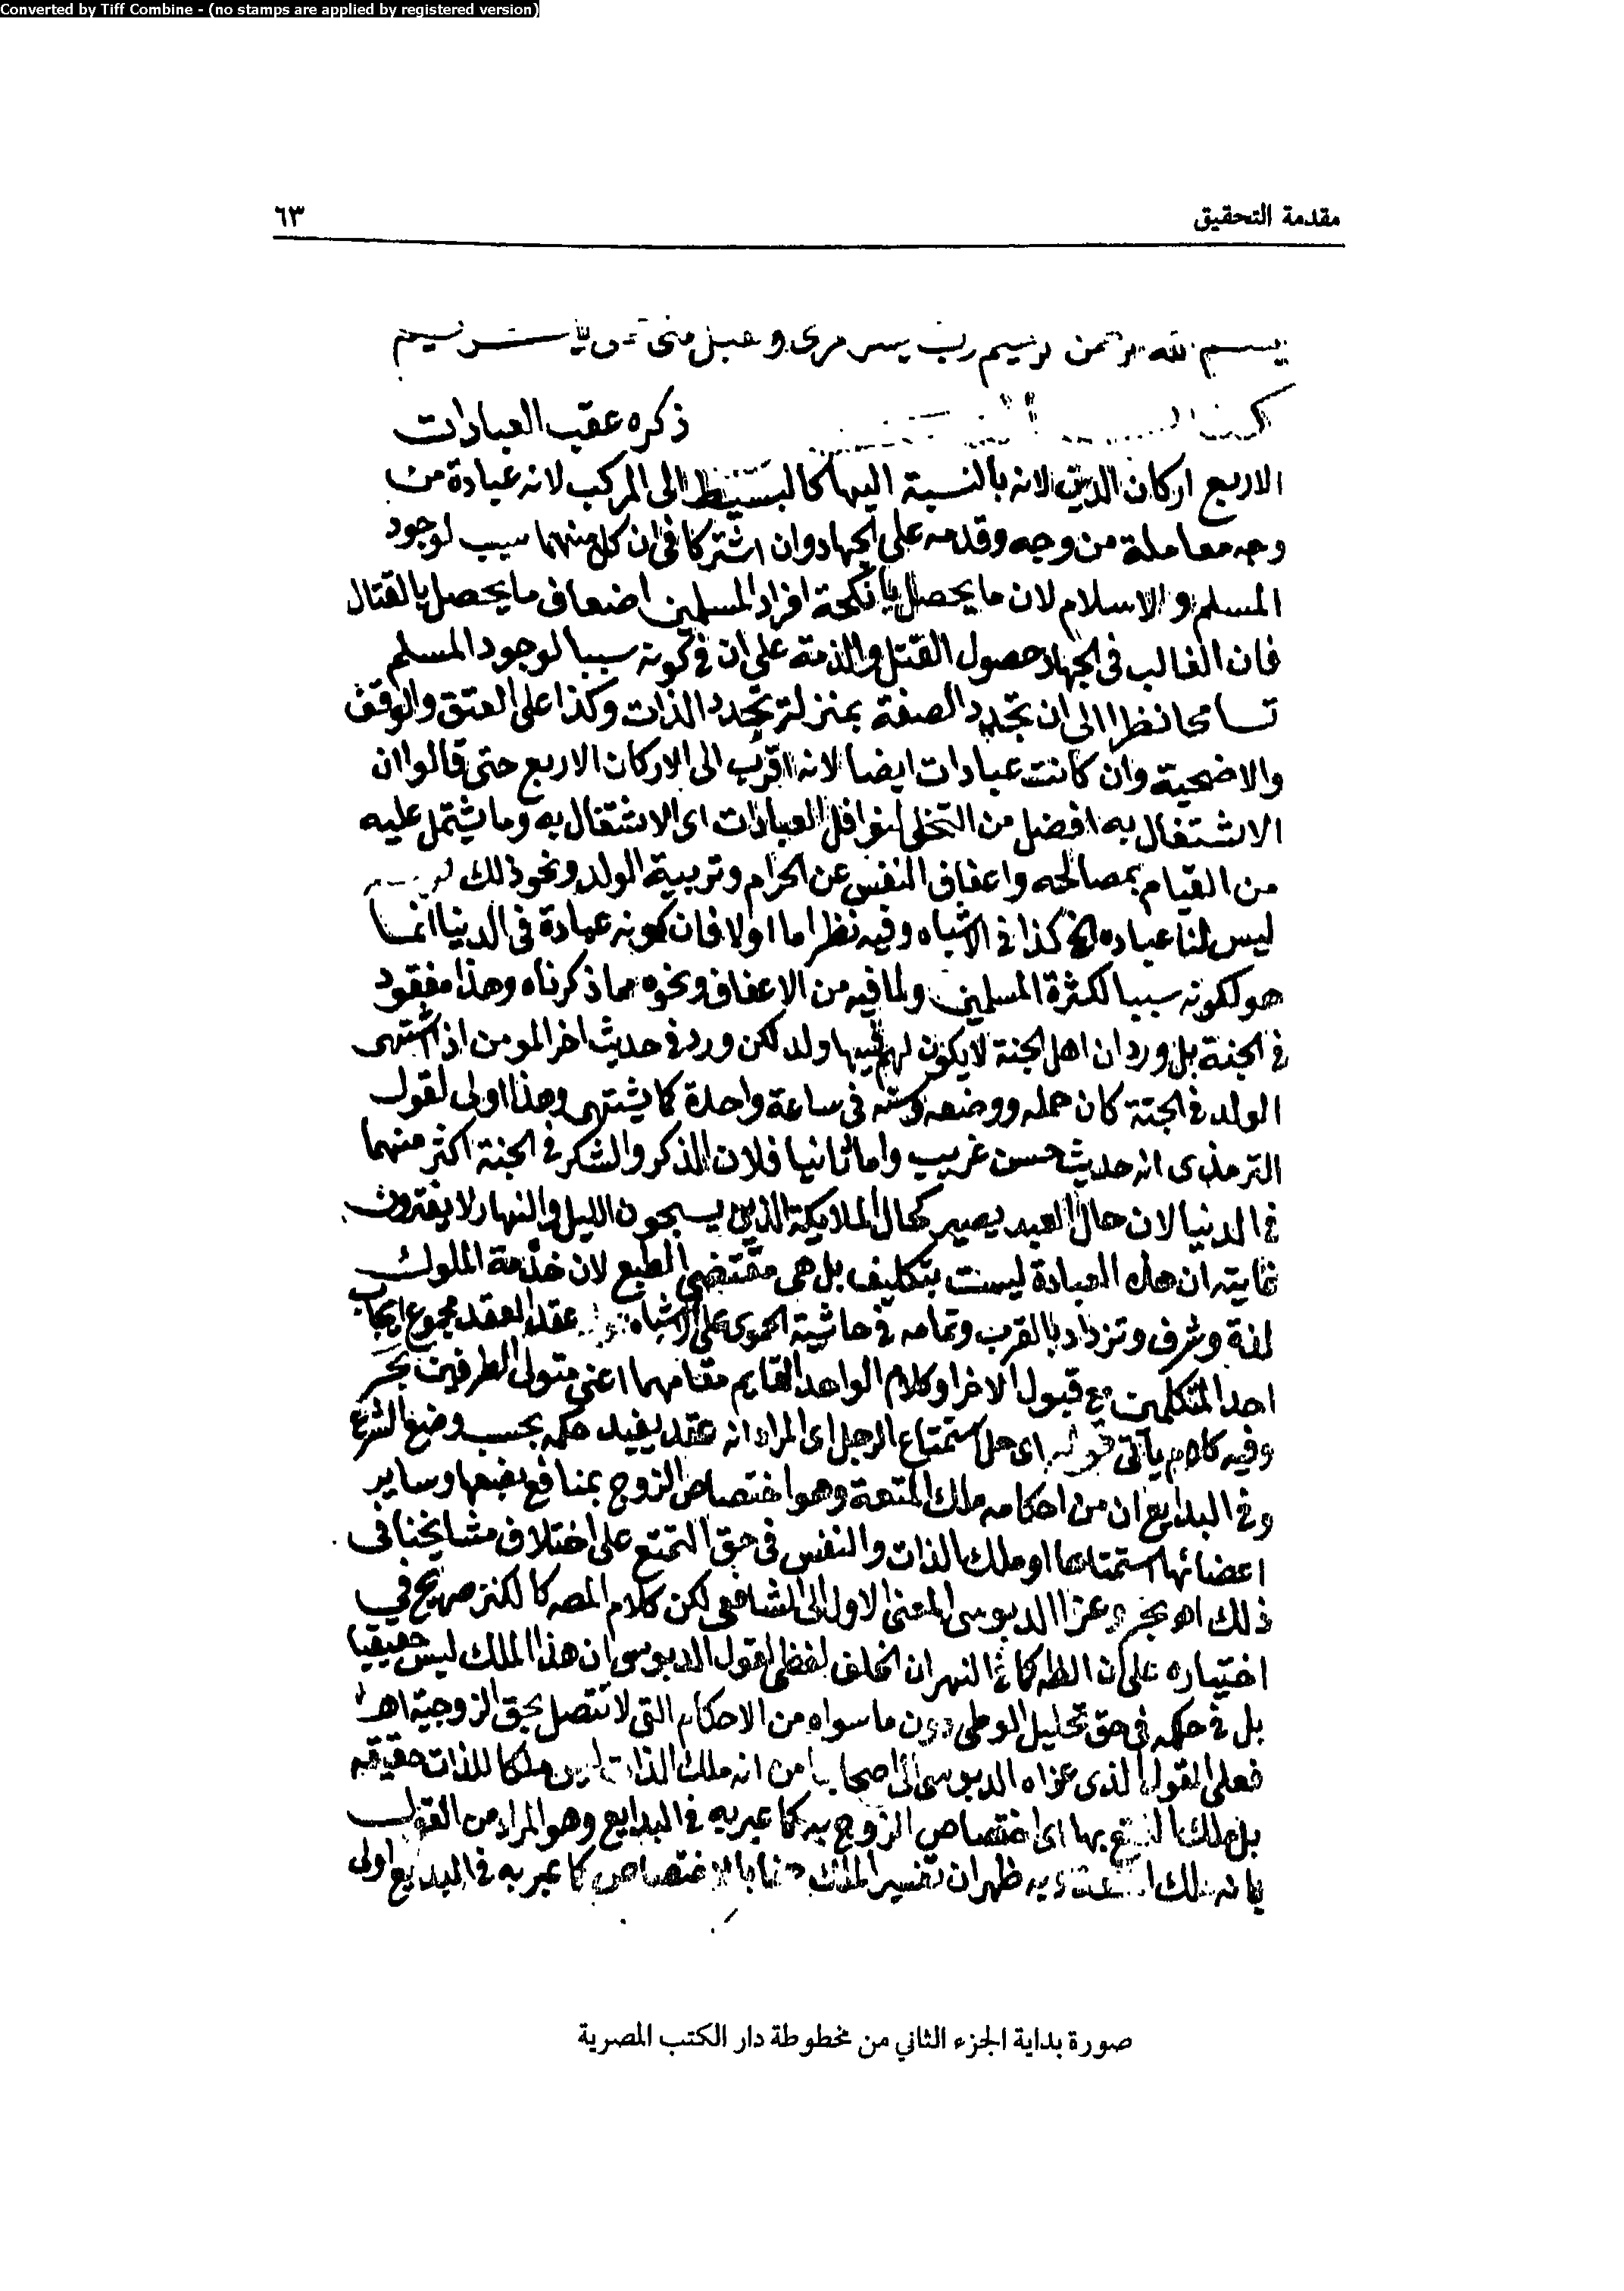 Converted by Tiff Combine - (no stamps are applied by registered version)
مقدمة التحقيق
٦٣
بسم الله الرحمن الرحيم رب يسر
ذكره عقب العبادات
الاربع اركان الدين لانه بالنسبة اليها كالبسيط الى المركب لانه عبادة من
وجه معاملة من وجه وقدمه على الجهاد وان اشتركا في ان كل منهما سبب لوجود
المسلم والاسلام لان ما يحصل بانكحة افراد المسلمين اضعاف ما يحصل بالقتال
فان الغالب في الجهاد حصول القتل والذمة على ان في كونه سببا لوجود المسلم
تسامحا نظرا الى ان تجدد الصفة بمنزلة تجدد الذات وكذا على العتق والوقف
والاضحية وان كانت عبادات ايضا لانه اقرب الى الاركان الاربع حتى قالوا ان
الاشتغال به افضل من التخلى لنوافل العبادات اى الاشتغال به وما يشتمل عليه
من القيام بمصالحه واعفاف النفس عن الحرام وتربية الولد ونحو ذلك
ليس لنا عباده الخ كذا في الاشباه وفيه نظر اما اولا فان كونه عبادة في الدنيا انما
هو لكونه سببا لكثرة المسلمين ولما فيه من الاعفاف ونحوه مما ذكرناه وهذا مفقود
في الجنة بل ورد ان اهل الجنة لا يكون لهم فيها ولد لكن ورد في حديث اخر المومن اذا اشتهى
الولد في الجنة كان حمله ووضعه وسنه في ساعة واحدة كما يشتهى وهذا اولى لقول
الترمذى انه حديث حسن غريب واما ثانيا فلان الذكر والشكر في الجنة اكثر منهما
في الدنيا لان حال العبد يصير كحال الملايكة الذين يسبحون الليل والنهار لا يفترون
غايته ان هذه العبادة ليست بتكليف بل هى مقتضى الطبع لان خدمة الملوك
لذة وشرف وتزداد بالقرب وتمامه في حاشية الحموى على الاشباه عقد العقد مجموع ايجاب
احد المتكلمين مع قبول الاخر او كلام الواحد القايم مقامهما اعنى متولى الطرفين بحر
وفيه كلام يأتى قوله اى حل استمتاع الرجل اى المراد انه عقد يفيد حكمه بحسب وضع الشرع
وفي البدايع ان من احكامه ملك المتعة وهو اختصاص الزوج بمنافع بضعها وساير
اعضائها استمتاعا او ملك الذات والنفس في حق التمتع على اختلاف مشايخنا في
ذلك اه بحر وعزا الدبوسى المعنى الاول الى الشافعى لكن كلام المصه كالكنز صريح في
اختياره على ان الظ كما في النهر ان الخلف لفظى لقول الدبوسى ان هذا الملك ليس حقيقيا
بل في حكمه في حق تحليل الوطى دون ما سواه من الاحكام التى لا تتصل بحق الزوجية اه
فعلى القول الذى عزاه الدبوسى الى اصحابنا من انه ملك الذات ليس ملكا للذات حقيقة
بل ملك التمتع بها اى اختصاص الزوج به كما عبر به في البدايع وهو المراد من القول
بانه ملك المتعة وبه ظهر ان تفسير الملك هنا بالاختصاص كما عبر به في البدايع اولى
صورة بداية الجزء الثاني من مخطوطة دار الكتب المصرية